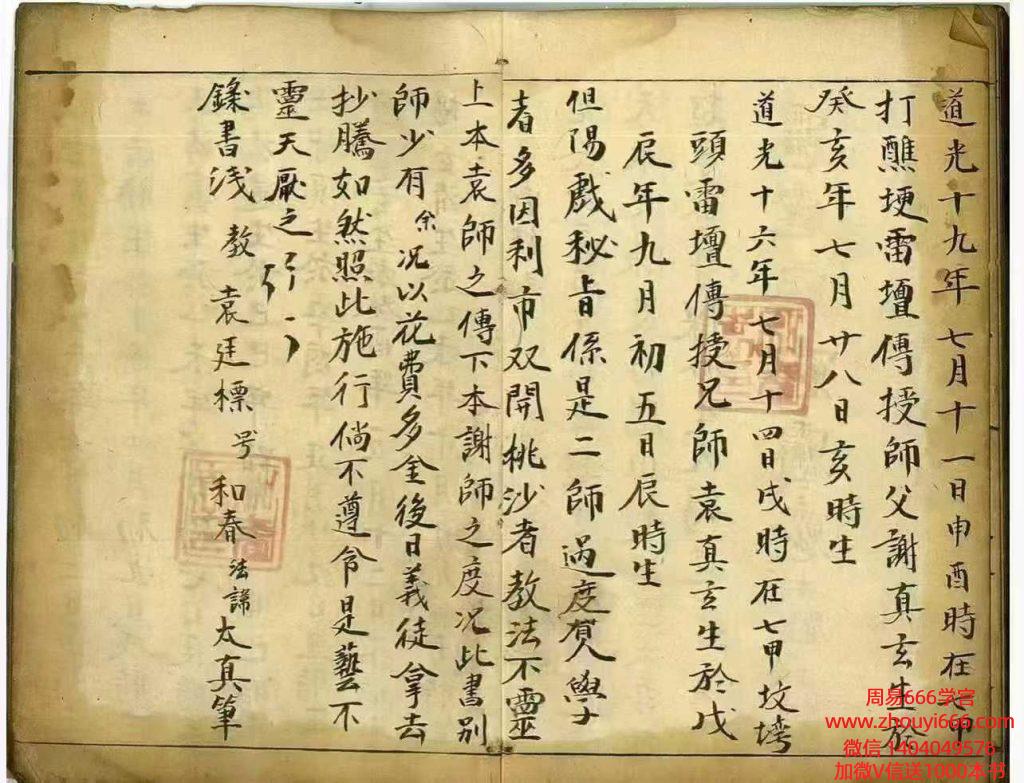 道光十九年七月十一日申酉時在七甲
打醮埂雷壇傳授師父謝真玄生於
癸亥年七月廿八日亥時生
道光十六年七月十四日戌時在七甲坟塆
頭雷壇傳授兄師袁真玄生於戊
辰年九月初五日辰時生
但陽戲秘旨係是二師過度賀人學
者多因利市双開桃沙者教法不靈
上本袁師之傳下本謝師之度况此書別
師少有余况以花費多金後日義徒拿去
抄騰如然照此施行倘不遵令是藝不
靈天厭之
錄書浅教袁廷標号和春法諱太真筆
周易666学宫
www.zhouyi666.com
微信 1404049576
加微V信送1000本书